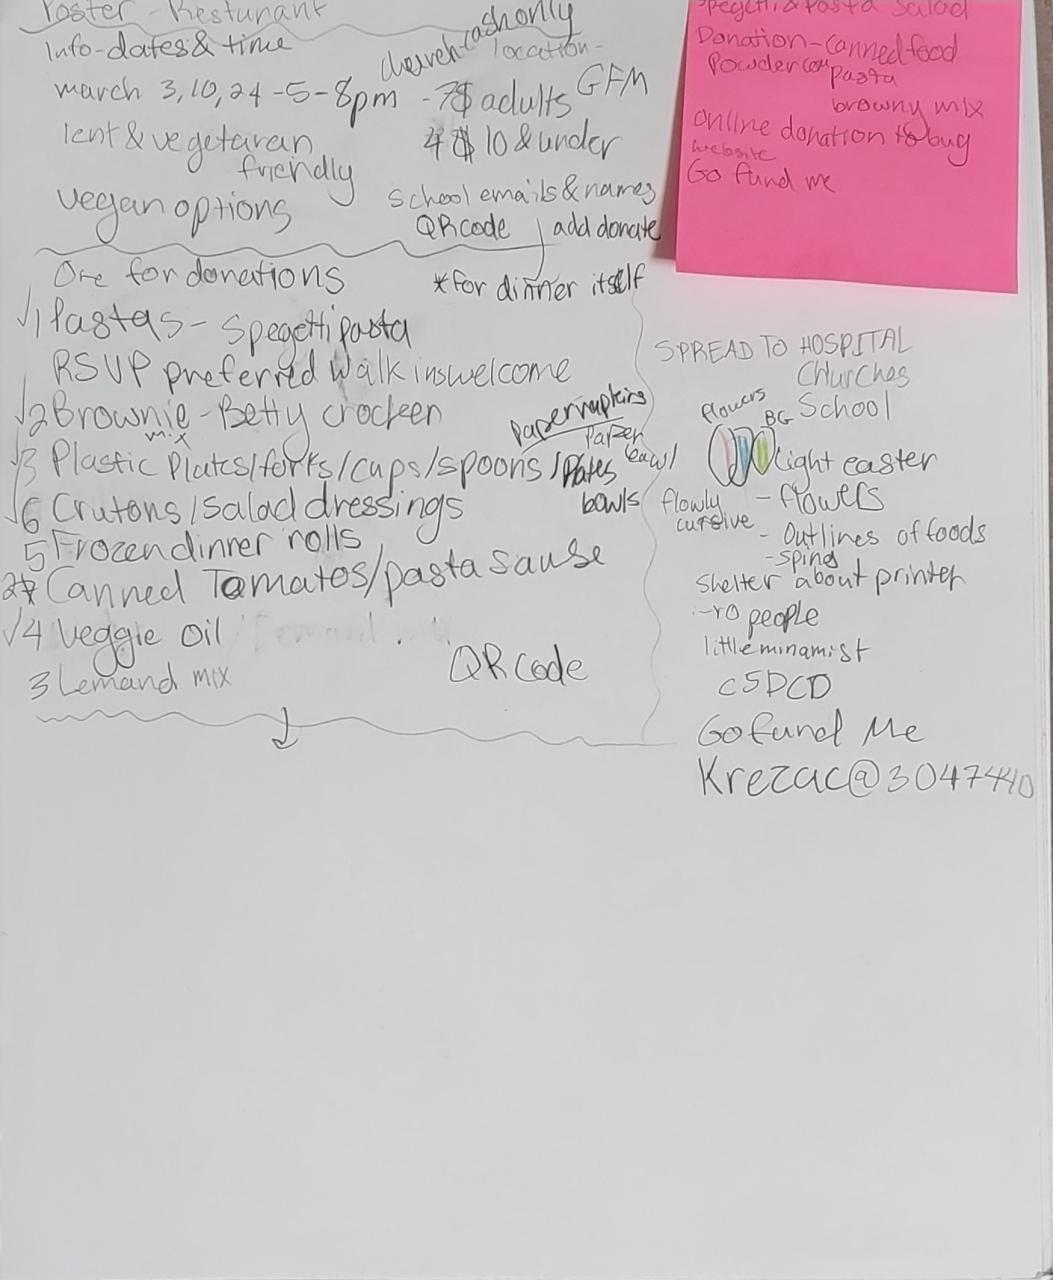 Poster - Resturant
Info-dates & time
church-cash only
location-
march 3,10,24 -5-8pm -7$ adults GFM
lent & vegetaran
friendly
4$ 10 & under
vegan options
school emails & names
QR code
add donate
*for dinner itself
One for donations
√1 Pastas- spegetti pasta
RSVP preferred walk ins welcome
√2 Brownie - Betty crocken
mix
√3 Plastic Plates/forks/cups/spoons/Plates
Paper napkins
Paper
bowl
bowls
√6 Crutons/Salad dressings
5 Frozen dinner rolls
Canned Tomatos/pasta sause
√4 Veggie oil
3 Lemand mix
QR code
Spegetti & Pasta Salad
Donation-canned food
Powder
pasta
browny mix
Online donation to bug
website
Go fund me
SPREAD TO HOSPITAL
Churches
School
flowers
BG
light easter
- flowers
flowly
cursive
- Outlines of foods
-sping
Shelter about printer
people
little minamist
C5DCD
Gofund Me
Krezac@3047440